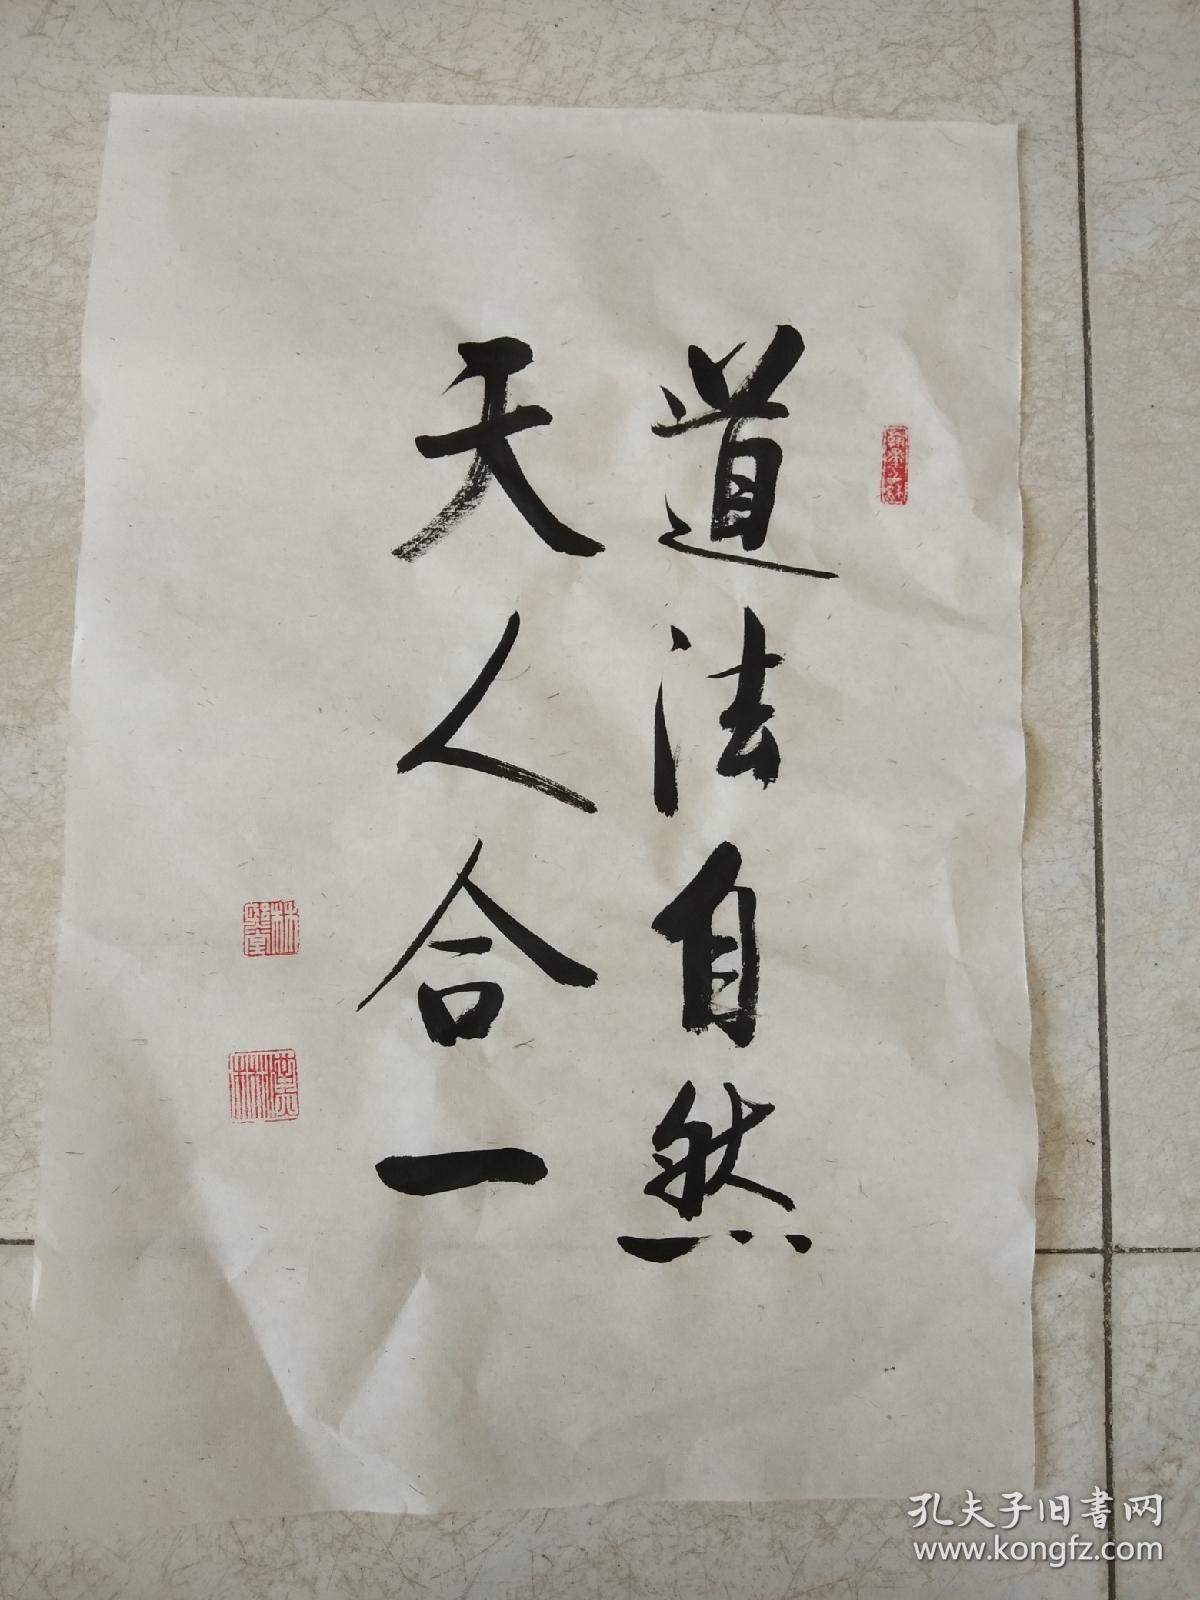 道法自然
天人合一
孔夫子旧书网
www.kongfz.com